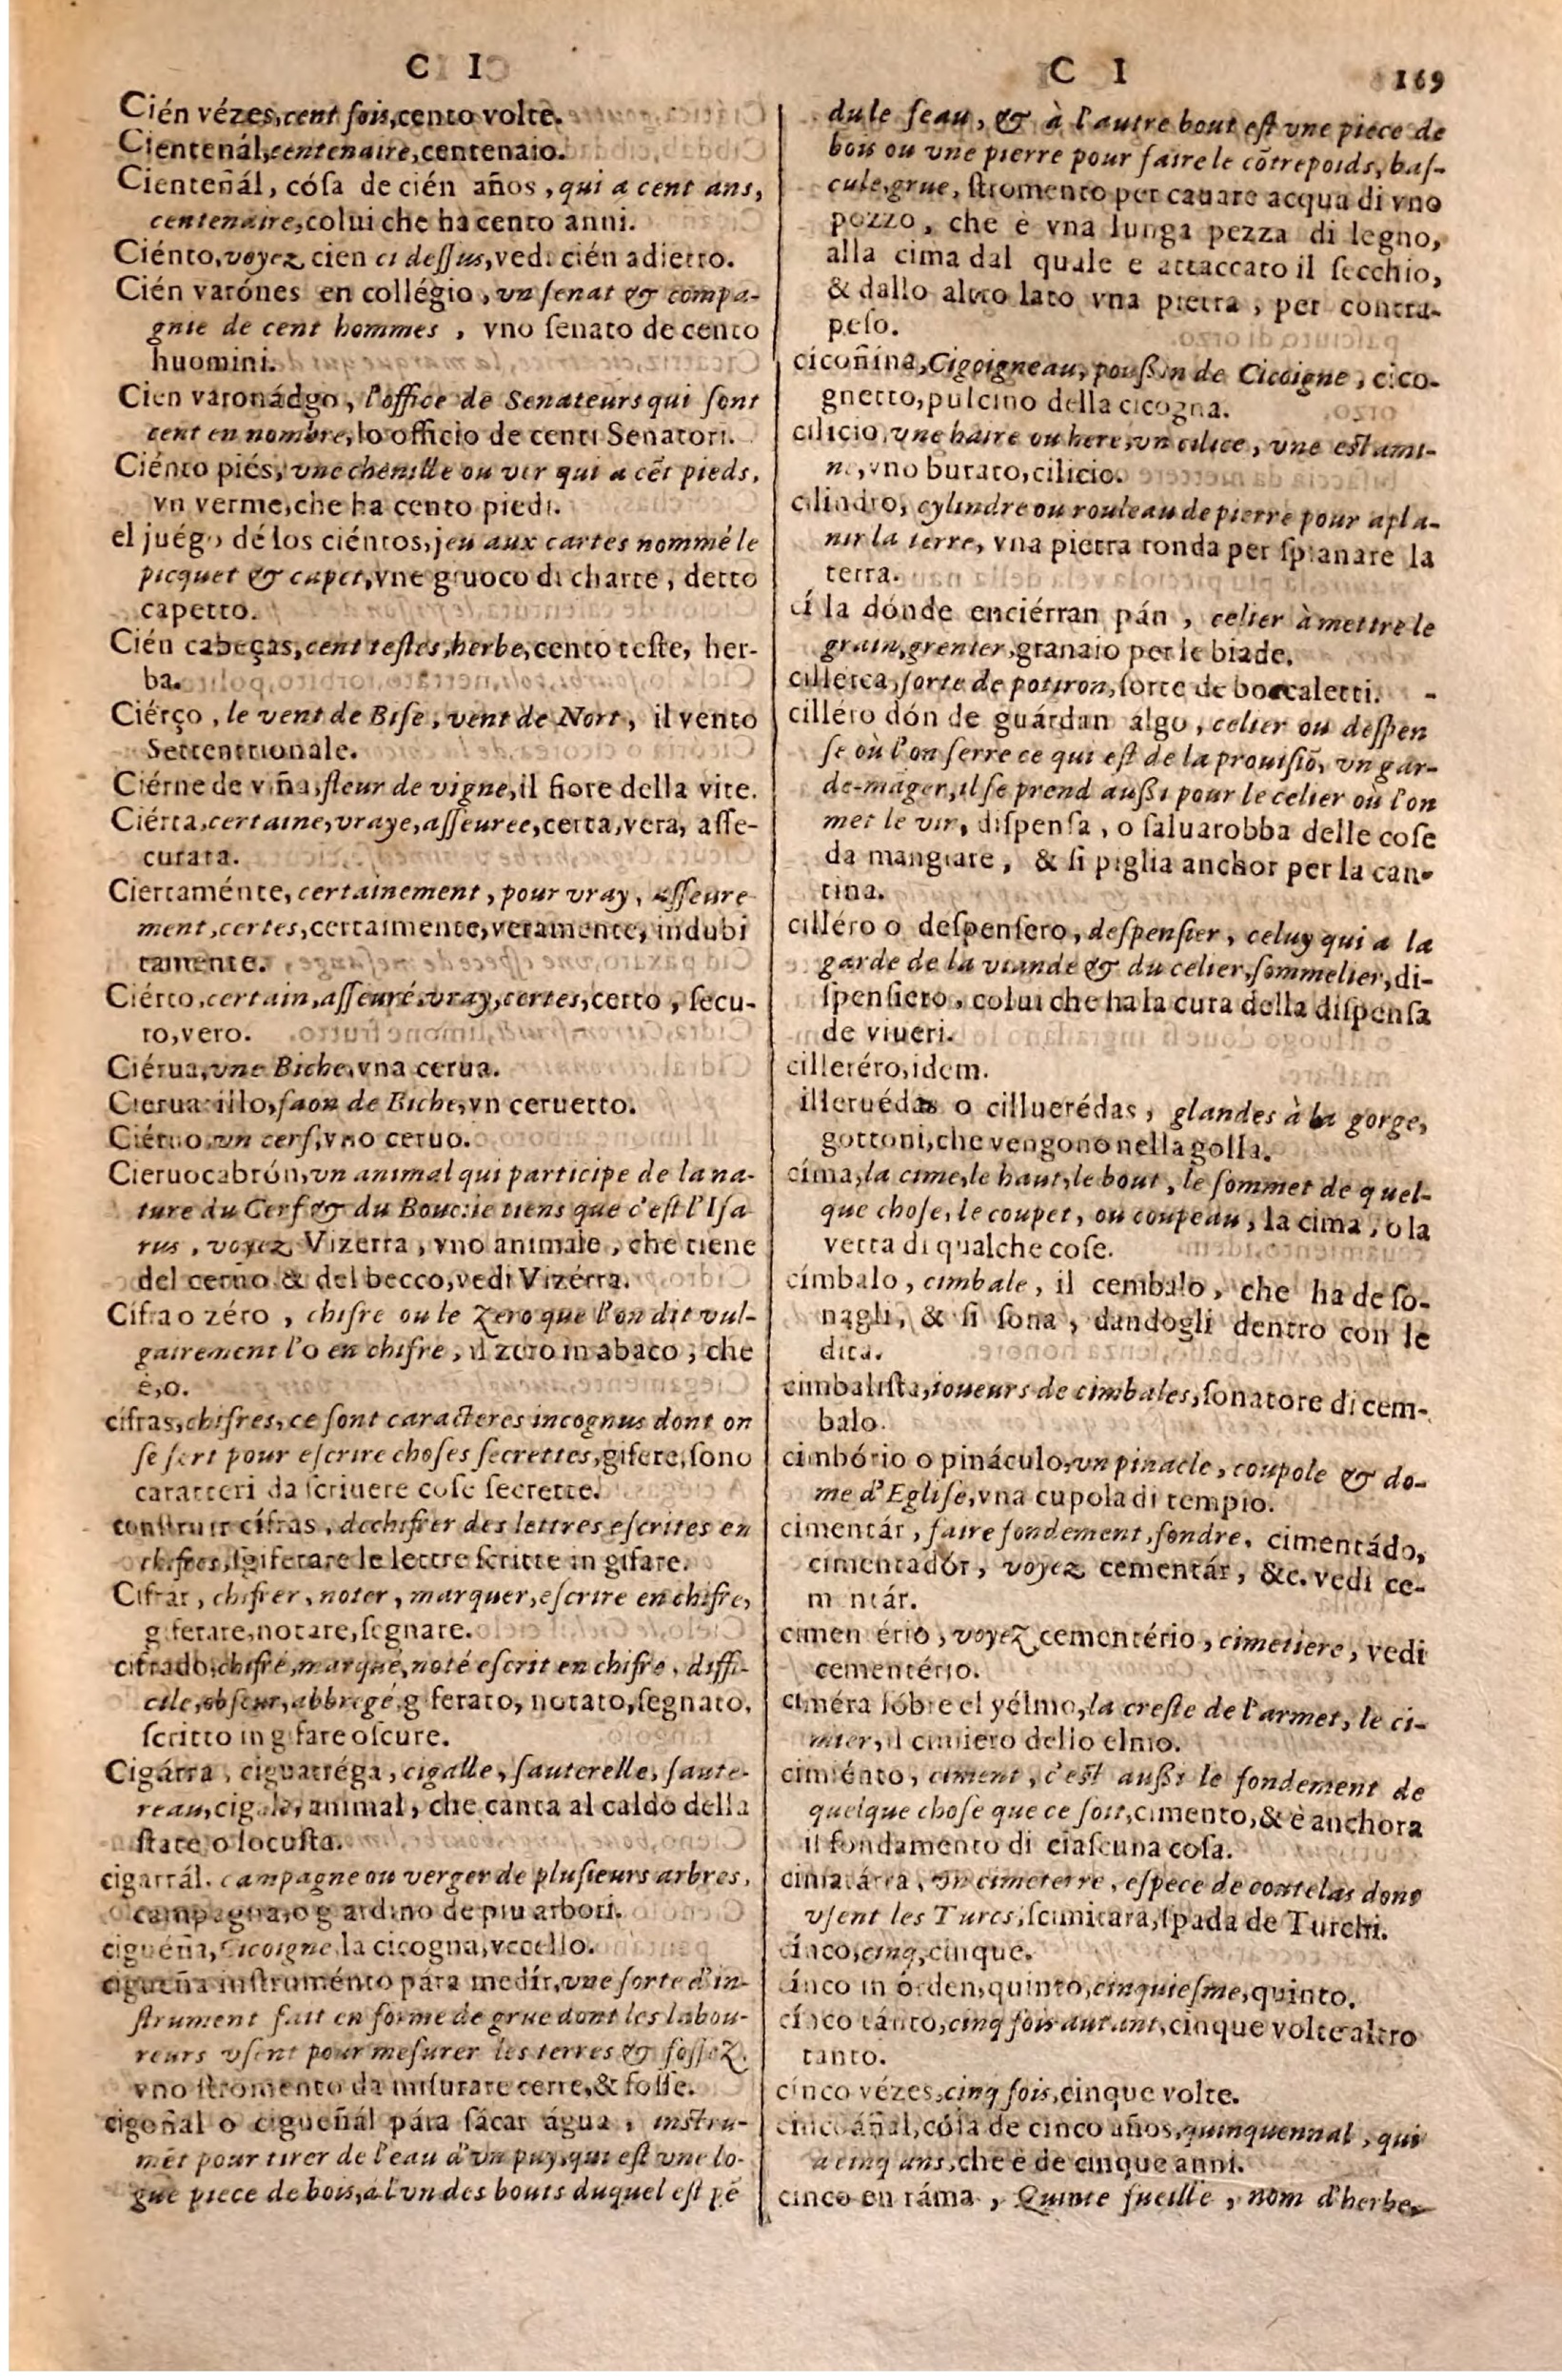 C I
Cién vézes, cent fois, cento volte.
Cientenál, centenaire, centenaio.
Cienteñál, cósa de cién años, qui a cent ans,
centenaire, colui che ha cento anni.
Ciénto, voyez cien ci deſſus, vedi cién adietro.
Cién varónes en collégio, vn ſenat & compa-
gnie de cent hommes, vno ſenato de cento
huomini.
Cien varonádgo, l'office de Senateurs qui ſont
cent en nombre, lo officio de centi Senatori.
Ciénto piés, vne chenille ou ver qui a cẽt pieds,
vn verme, che ha cento piedi.
el juégo dé los ciéntos, jeu aux cartes nommé le
picquet & capet, vne giuoco di charte, detto
capetto.
Cién cabeças, cent teſtes, herbe, cento teſte, her-
ba.
Ciérço, le vent de Biſe, vent de Nort, il vento
Settentrionale.
Ciérne de viña, fleur de vigne, il fiore della vite.
Ciérta, certaine, vraye, aſſeuree, certa, vera, aſſe-
curata.
Ciertaménte, certainement, pour vray, aſſeure
ment, certes, certaimente, veramente, indubi
tamente.
Ciérto, certain, aſſeuré, vray, certes, certo, ſecu-
ro, vero.
Ciérua, vne Biche, vna cerua.
Cieruatillo, faon de Biche, vn ceruetto.
Ciéruo, vn cerf, vno ceruo.
Cieruocabrón, vn animal qui participe de la na-
ture du Cerf & du Bouc: ie tiens que c'eſt l'Iſa
rus, voyez Vizerra, vno animale, che tiene
del ceruo & del becco, vedi Vizérra.
Cifra o zéro, chifre ou le zero que l'on dit vul-
gairement l'o en chifre, il zero in abaco, che
è, o.
cífras, chifres, ce ſont caracteres incognus dont on
ſe ſert pour eſcrire choſes ſecrettes, gifere, ſono
caratteri da ſcriuere coſe ſecrette.
construir cífras, dechifrer des lettres eſcrites en
chifres, ſgiferare le lettre ſcritte in gifare.
Cifrár, chifrer, noter, marquer, eſcrire en chifre,
giferare, notare, ſegnare.
cifrado, chifré, marqué, noté eſcrit en chifre, diffi-
cile, obſcur, abbregé, giferato, notato, ſegnato,
ſcritto in gifare oſcure.
Cigárra, ciguarréga, cigalle, ſauterelle, ſaute-
reau, cigale, animal, che canta al caldo della
ſtate o locuſta.
cigarrál, campagne ou verger de pluſieurs arbres,
campagna, o giardino de piu arbori.
ciguéña, Cicoigne, la cicogna, vccello.
cigueña inſtruménto pára medír, vne ſorte d'in-
ſtrument fait en forme de grue dont les labou-
reurs vſent pour meſurer les terres & foſſez,
vno ſtromento da miſurare terre, & foſſe.
cigoñal o cigueñál pára ſácar água, inſtru-
mẽt pour tirer de l'eau d'vn puy, qui eſt vne lo-
gue piece de bois, à l'vn des bouts duquel eſt pẽ
C I 169
du le ſeau, & à l'autre bout eſt vne piece de
bois ou vne pierre pour faire le cõtrepoids, baſ-
cule, grue, ſtromento per cauare acqua di vno
pozzo, che è vna lunga pezza di legno,
alla cima dal quale e attaccato il ſecchio,
& dallo altro lato vna pietra, per contra-
peſo.
cicoñina, Cigoigneau, pouſſin de Cicoigne, cico-
gnetto, pulcino della cicogna.
cilicio, vne haire ou here, vn cilice, vne eſtami-
ne, vno burato, cilicio.
cilindro, cylindre ou rouleau de pierre pour apla-
nir la terre, vna pietra tonda per ſpianare la
terra.
cí la dónde enciérran pán, celier à mettre le
grain, grenier, granaio per le biade.
cillérca, ſorte de potiron, ſorte de boccaletti.
cilléro dón de guárdan algo, celier ou deſpen
ſe où l'on ſerre ce qui eſt de la prouiſiõ, vn gar-
de-mãger, il ſe prend auſſi pour le celier où l'on
met le vin, diſpenſa, o ſaluarobba delle coſe
da mangiare, & ſi piglia anchor per la can-
tina.
cilléro o deſpenſero, deſpenſier, celuy qui a la
garde de la viande & du celier, ſommelier, di-
ſpenſiero, colui che ha la cura della diſpenſa
de viueri.
cilleréro, idem.
illeruédas o cilluerédas, glandes à la gorge,
gottoni, che vengono nella golla.
címa, la cime, le haut, le bout, le ſommet de quel-
que choſe, le coupet, ou coupeau, la cima, o la
vetta di qualche coſe.
címbalo, cimbale, il cembalo, che ha de ſo-
nagli, & ſi ſona, dandogli dentro con le
dita.
cimbaliſta, ioueurs de cimbales, ſonatore di cem-
balo.
cimbório o pináculo, vn pinacle, coupole & do-
me d'Egliſe, vna cupola di tempio.
cimentár, faire fondement, fondre. cimentádo,
cimentadór, voyez cementár, &c. vedi ce-
m ntár.
cimen ério, voyez cementério, cimetiere, vedi
cementério.
ciméra ſóbre el yélmo, la creſte de l'armet, le ci-
mier, il cimiero dello elmo.
cimiénto, ciment, c'eſt auſſi le fondement de
quelque choſe que ce ſoit, cimento, & è anchora
il fondamento di ciaſcuna coſa.
cimitárra, vn cimeterre, eſpece de coutelas dont
vſent les Turcs, ſcimitara, ſpada de Turchi.
cínco, cinq, cinque.
cínco in órden, quinto, cinquieſme, quinto.
cínco tánto, cinq fois autant, cinque volte altro
tanto.
cínco vézes, cinq fois, cinque volte.
cincoáñal, cóſa de cinco años, quinquennal, qui
a cinq ans, che è de cinque anni.
cinco en ráma, Quinte fueille, nom d'herbe,